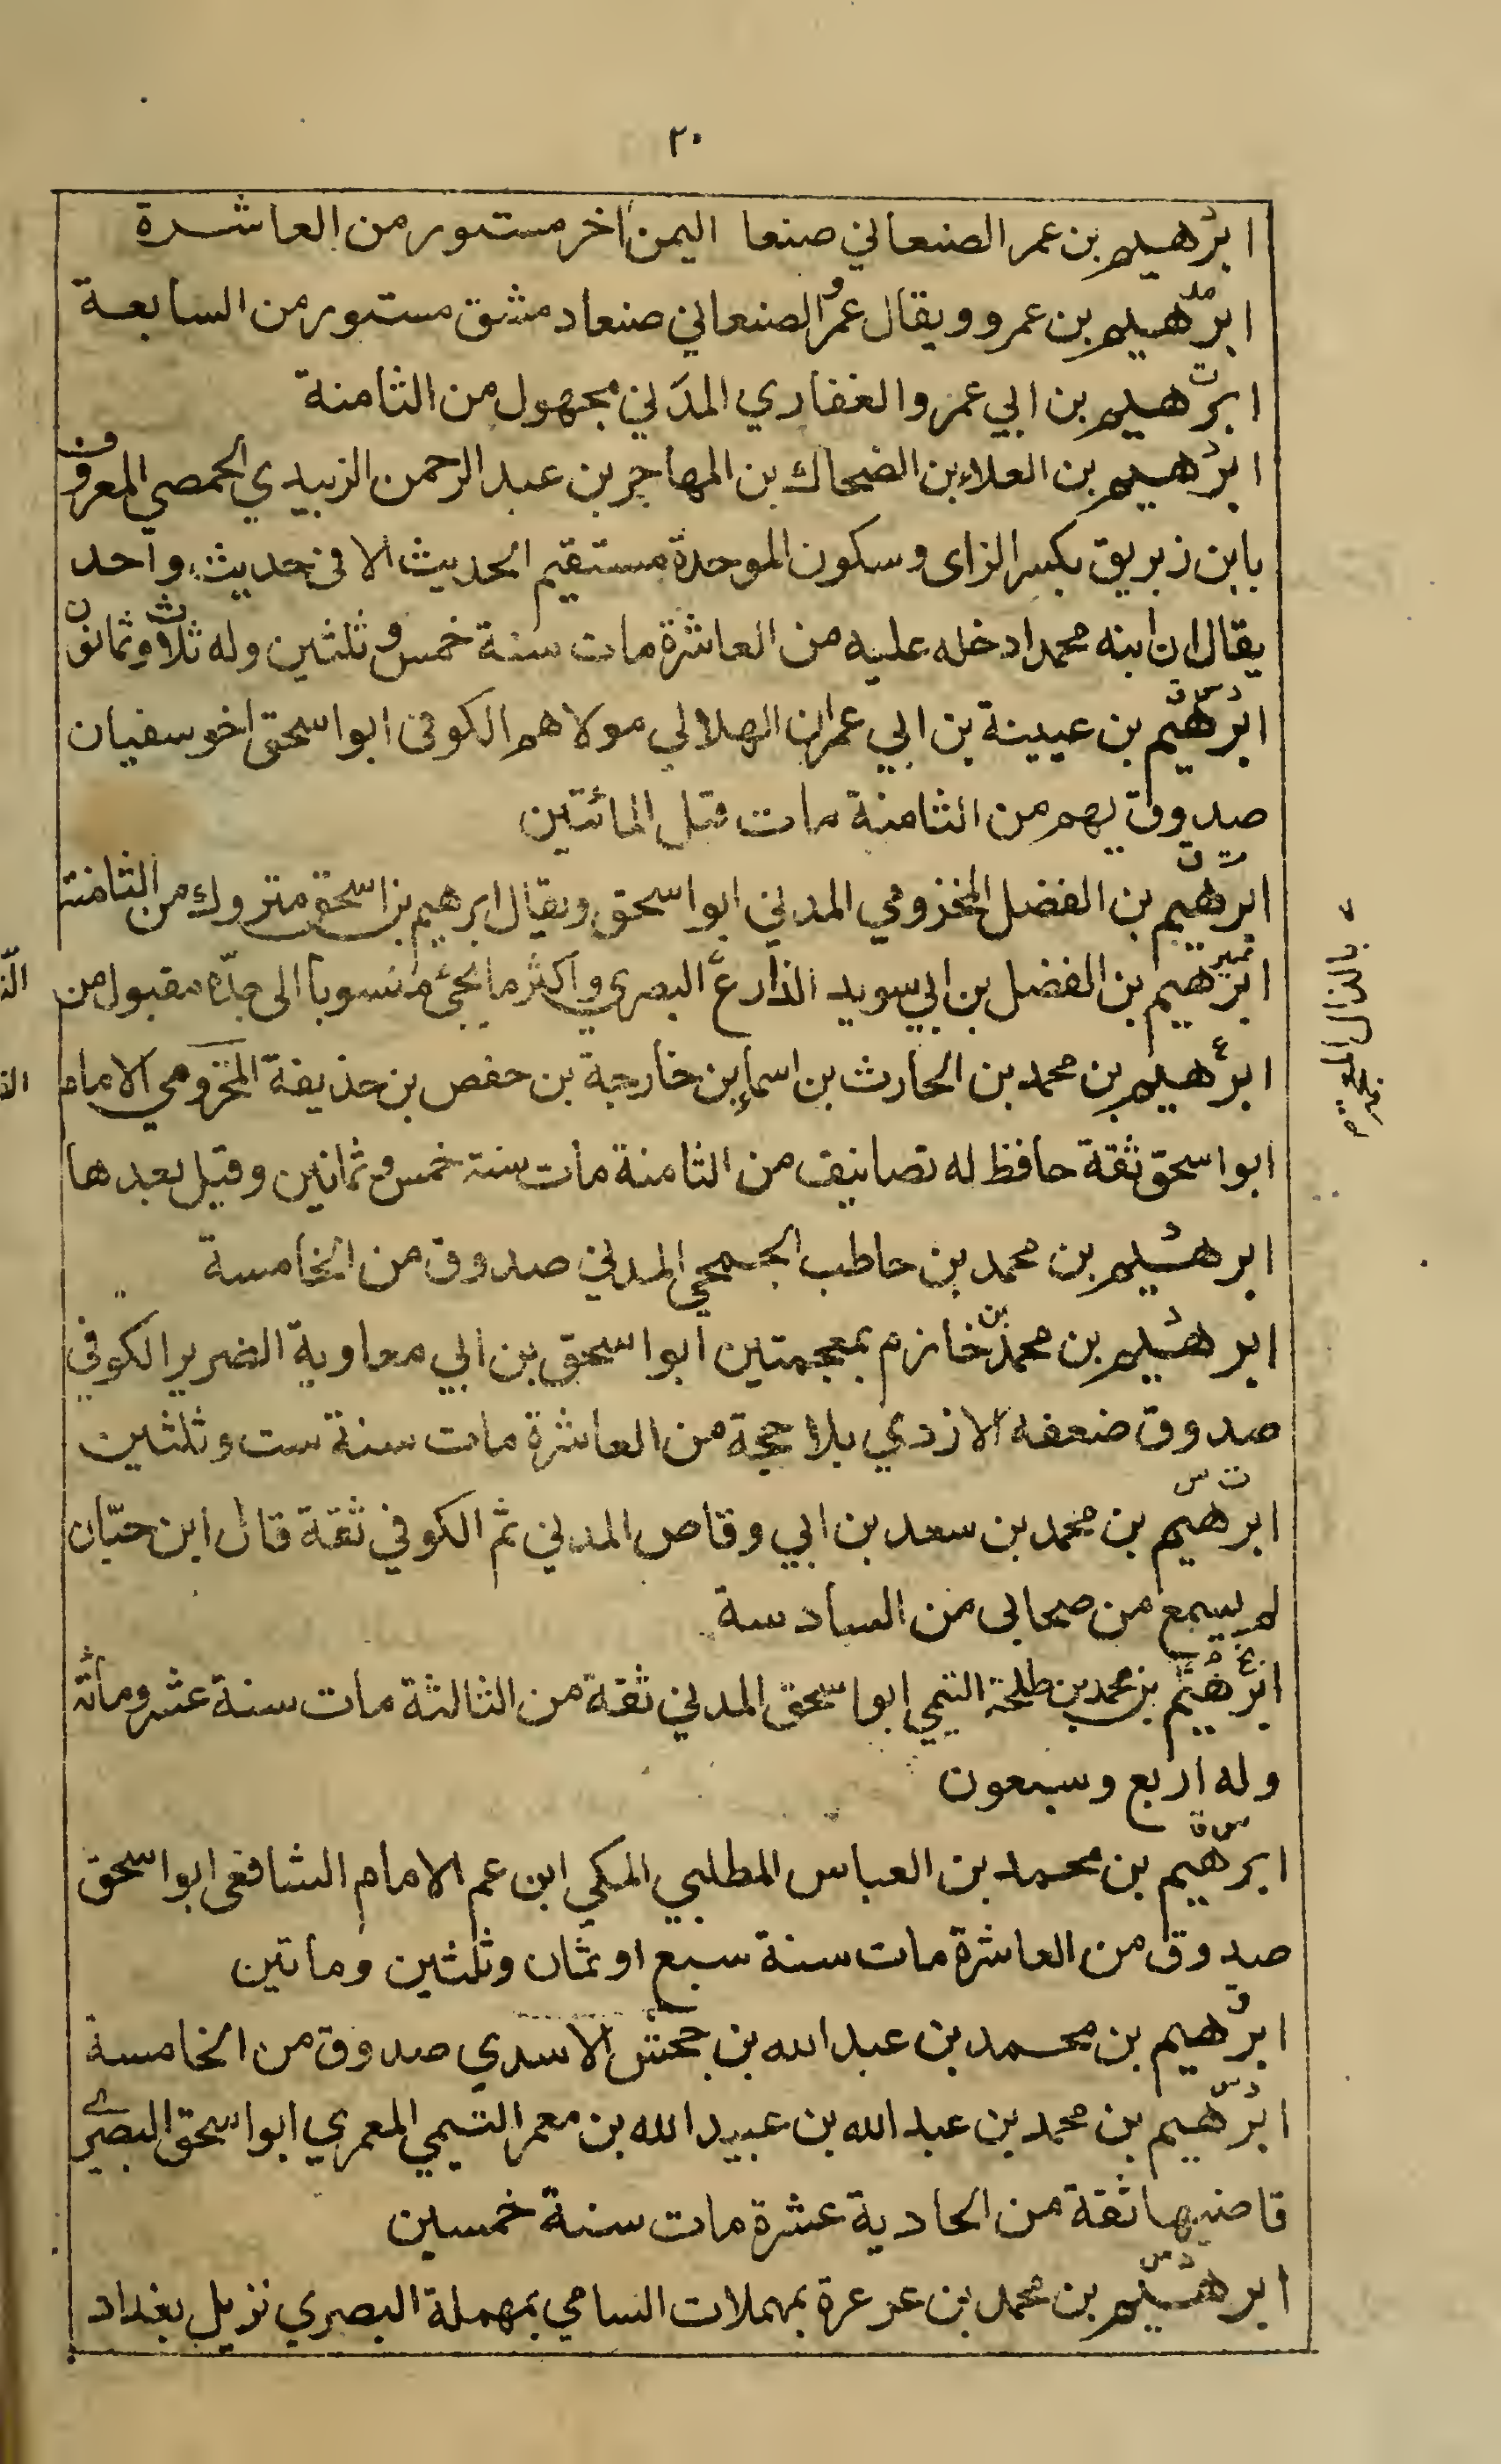 ٢٠
ابرهيم بن عمر الصنعاني صنعا اليمن اخر مستور من العاشرة
ابرهيم بن عمرو ويقال عمر الصنعاني صنعا دمشق مستور من السابعة
ابرهيم بن ابي عمرو الغفاري المدني مجهول من الثامنة
ابرهيم بن العلاء بن الضحاك بن المهاجر بن عبد الرحمن الزبيدي الحمصي المعروف
بابن زبريق بكسر الزاى وسكون الموحدة مستقيم الحديث الا في حديث واحد
يقال ان ابنه محمدا دخله عليه من العاشرة مات سنة خمس وثلثين وله ثلاث وثمانون
د س ق
ابرهيم بن عيينة بن ابي عمران الهلالي مولاهم الكوفى ابو اسحق اخو سفيان
صدوق يهم من الثامنة مات قبل المائتين
ت ق
ابرهيم بن الفضل المخزومي المدني ابو اسحق ويقال ابرهيم بن اسحق متروك من الثامنة
تمييز
ابرهيم بن الفضل بن ابي سويد الذارع البصري واكثر ما يجئ منسوبا الى جده مقبول من
ابرهيم بن محمد بن الحارث بن اسماء بن خارجة بن حفص بن حذيفة المخزومي الامام
ابو اسحق ثقة حافظ له تصانيف من الثامنة مات سنة خمس وثمانين وقيل بعدها
ابرهيم بن محمد بن حاطب الجمحي المدني صدوق من الخامسة
ابرهيم بن محمد بن خازم بمعجمتين ابو اسحق بن ابي معاوية الضرير الكوفي
صدوق ضعفه الازدي بلا حجة من العاشرة مات سنة ست وثلثين
ت س
ابرهيم بن محمد بن سعد بن ابي وقاص المدني ثم الكوفي ثقة قال ابن حبّان
لم يسمع من صحابى من السادسة
بخ م
ابرهيم بن محمد بن طلحة التيمي ابو اسحق المدني ثقة من الثالثة مات سنة عشر ومائة
وله اربع وسبعون
س ق
ابرهيم بن محمد بن العباس المطلبي المكي ابن عم الامام الشافعى ابو اسحق
صدوق من العاشرة مات سنة سبع او ثمان وثلثين وماتين
ق
ابرهيم بن محمد بن عبد الله بن جحش الاسدي صدوق من الخامسة
د س
ابرهيم بن محمد بن عبد الله بن عبيد الله بن معمر التيمي المعمري ابو اسحق البصري
قاضيها ثقة من الحادية عشرة مات سنة خمسين
ابرهيم بن محمد بن عرعرة بمهملات السامي بمهملة البصري نزيل بغداد
بالذال المعجمة